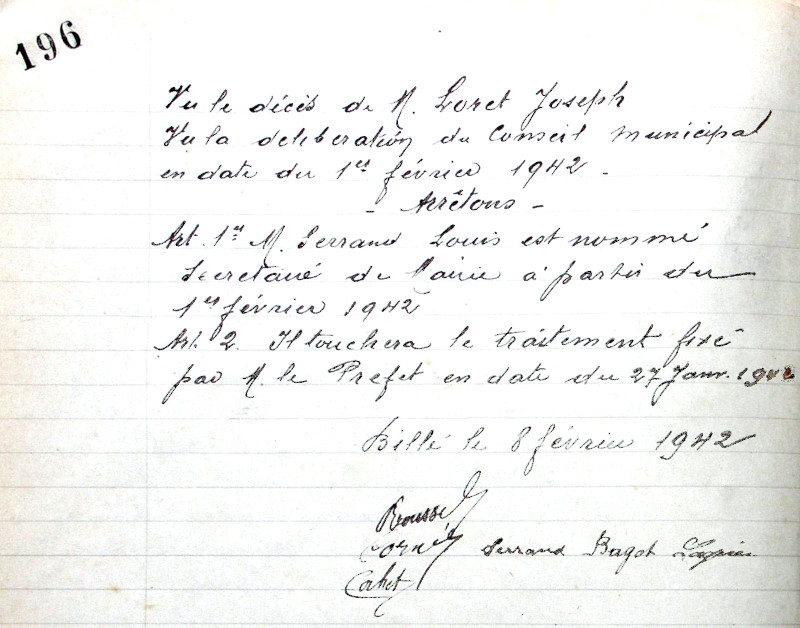 196
Vu le décès de M. Loret Joseph
Vu la deliberation du Conseil Municipal
en date du 1er février 1942 -
- Arrêtons -
Art. 1er M. Serrand Louis est nommé
Secretaire de Mairie à partir du
1er février 1942
Art. 2. Il touchera le traitement fixé
par M. le Prefet en date du 27 Janv. 1942
Billé le 8 février 1942
Roussel
Corné Serrand Bagot
Cahet